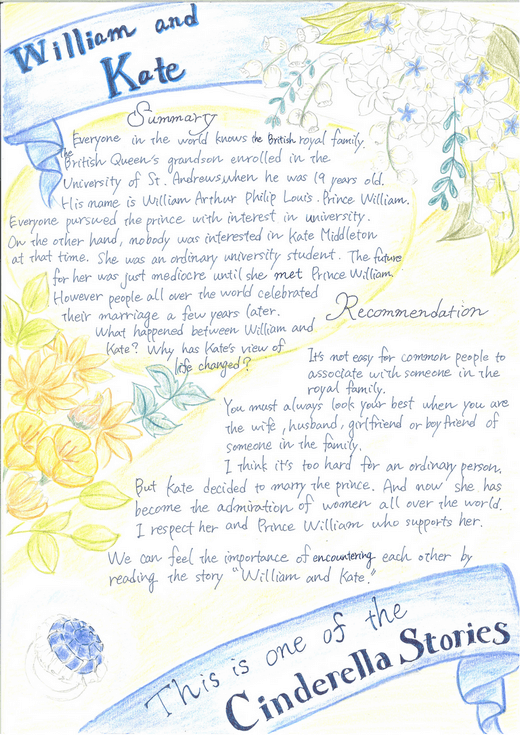 William and
Kate
Summary
Everyone in the world knows the British royal family.
the British Queen's grandson enrolled in the
University of St. Andrews when he was 19 years old.
His name is William Arthur Philip Louis. Prince William.
Everyone pursued the prince with interest in university.
On the other hand, nobody was interested in Kate Middleton
at that time. She was an ordinary university student. The future
for her was just mediocre until she met Prince William.
However people all over the world celebrated
their marriage a few years later.
What happened between William and
Kate? Why has Kate's view of
life changed?
Recommendation
It's not easy for common people to
associate with someone in the
royal family.
You must always look your best when you are
the wife, husband, girlfriend or boyfriend of
someone in the family.
I think it's too hard for an ordinary person.
But Kate decided to marry the prince. And now she has
become the admiration of women all over the world.
I respect her and Prince William who supports her.
We can feel the importance of encountering each other by
reading the story "William and Kate."
This is one of the
Cinderella Stories